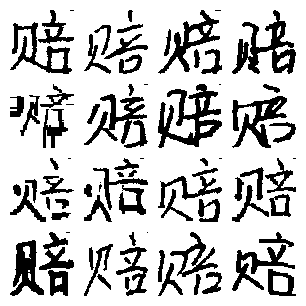 赔赔赔赔
赔赔赔赔
赔赔赔赔
赔赔赔赔